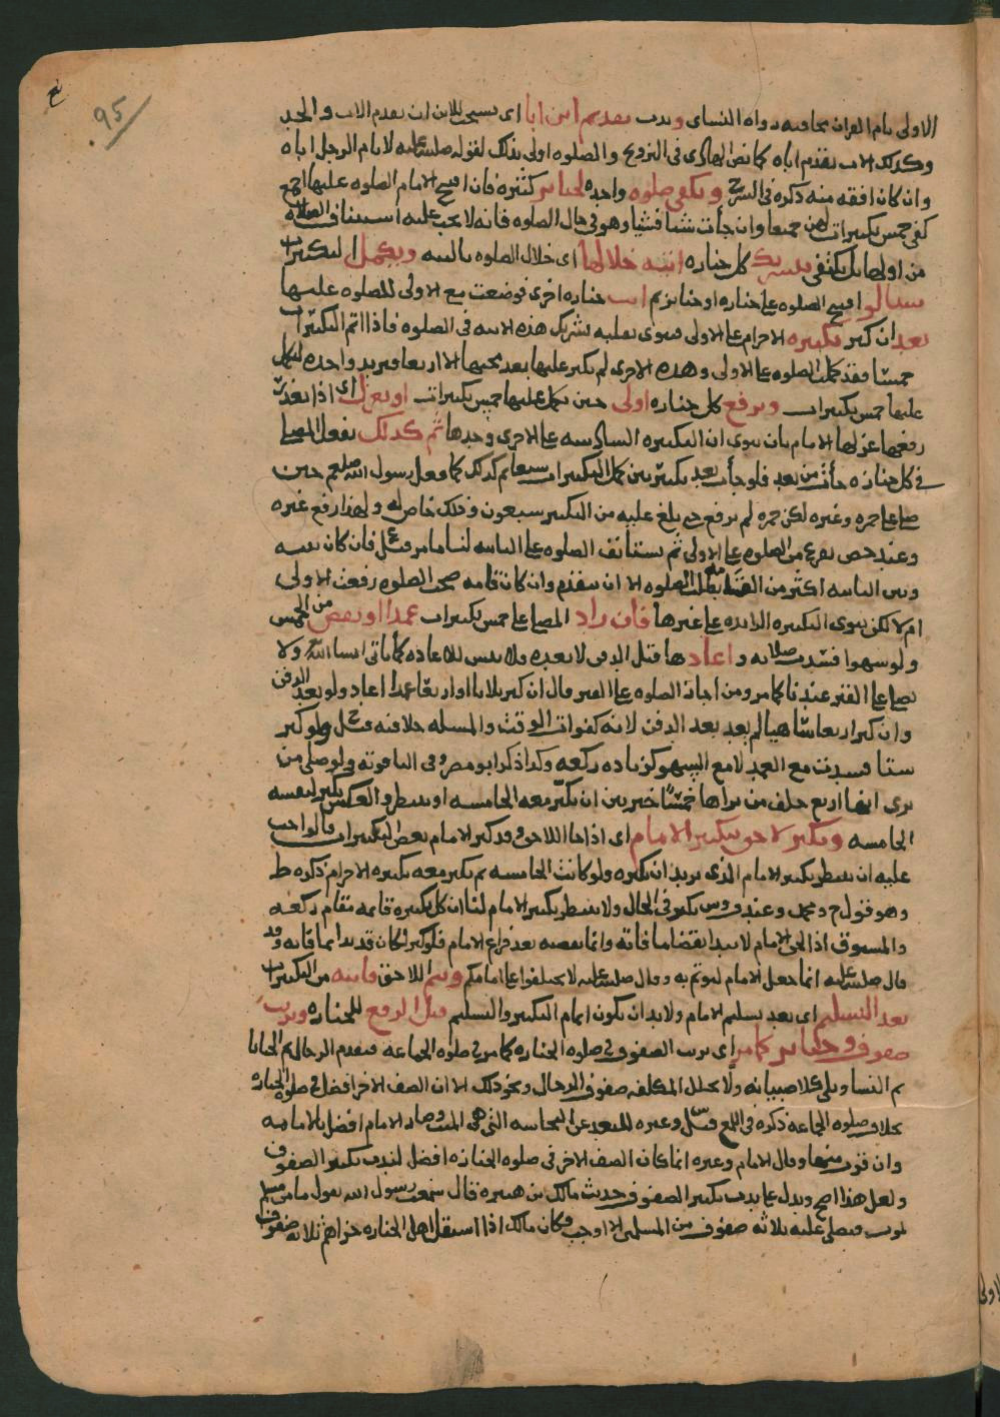 95
الاولى بام القران بخافته رواه النساى وندب تقديم ابن ابا اى يستحب للابن ان يقدم الاب والجد
وكذلك الاب يقدم اباه كما نص الهادى فى التزويج والصلوه اولى بذلك لقوله صلى الله عليه لا يام الرجل اباه
وان كان افقه منه ذكره فى الشرح وتكفى صلوه واحده لجنايز كثيره فان افتتح الامام الصلوه عليها اجمع
كفى خمس تكبيرات لهن جميعا وان جات شيا فشيا وهو فى حال الصلوه فانه لا يجب عليه استيناف الصلاه
من اولها بل يكفى تشريك كل جنازه اتت خلالها اى خلال الصلوه بالنيه وتكمل التكبيرات
ستا لو افتتح الصلوه على جنازه او جنايز ثم اتت جنازه اخرى فوضعت مع الاولى للصلوه عليها
بعد ان كبر تكبيره الاحرام على الاولى فينوى بقلبه تشريك هذه الاتيه فى الصلوه فاذا اتم التكبيرات
خمسا فقد كملت الصلوه على الاولى وهذه الاخرى لم يكبر عليها بعد مجيها الا اربعا فيزيد واحده ليكمل
عليها خمس تكبيرات وترفع كل جنازه اولى حين يكمل عليها خمس تكبيرات او تعزل اى اذا تعذر
رفعها عزلها الامام بان ينوى ان التكبيره السادسه على الاخرى وحدها ثم كذلك يفعل المصلى
فى كل جنازه جات من بعد فلو جات بعد تكبيرتين كمل التكبيرات سبعا ثم كذلك كما فعل رسول الله صلعم حين
صلى على حمزه وغيره لكن حمزه لم يرفع حتى بلغ عليه من التكبير سبعون وذلك خاص له ولهذا رفع غيره
وعند ص يفرغ من الصلوه على الاولى ثم يستانف الصلوه على الثانيه لنا ما مر فان كان بينه
وبين الثانيه اكثر من القامه بطلت الصلوه الا ان يتقدم وان كان قامه صحت الصلوه رفعت الاولى
ام لا لكن ينوى التكبيره الزايده على غيرها فان زاد المصلى على خمس تكبيرات عمدا او نقص من الخمس
ولو سهوا فسدت صلاته واعادها قبل الدفن لا بعده فلا ينبش للاعاده كما ياتى ان شا الله ولا
يصلى على القبر عندنا كما مر ومن اجاز الصلوه على القبر قال ان كبر ثلاثا او اربعا عمدا اعاد ولو بعد الدفن
وان كبر اربعا ساهيا لم يعد بعد الدفن لانه كفوات الوقت والمسله خلافيه ولو كبر
ستا فسدت مع العمد لا مع السهو كزياده ركعه وكذا ذكر ابو مضر وفى الياقوته ولو صلى من
يرى انها اربع خلف من يراها خمسا خير بين ان يكبر معه الخامسه او ينتظر والعكس يكبر لنفسه
الخامسه وتكبر لاحق بتكبير الامام اى اذا جا اللاحق وقد كبر الامام بعض التكبيرات فالواجب
عليه ان ينتظر تكبير الامام الذى يريد ان يكبره ولو كانت الخامسه ثم يكبر معه تكبيره الاحرام ذكره ط
وهو قول ح ومحمد وعند ف وش يكبر فى الحال ولا ينتظر تكبير الامام لنا ان كل تكبيره قايمه مقام ركعه
والمسبوق اذا لحق الامام لا يبدا بقضا ما فاته وانما يقضيه بعد فراغ الامام فلو كبر لكان قد بدا بما فاته وقد
قال صلى الله عليه انما جعل الامام ليوتم به وقال صلى الله عليه لا تختلفوا على امامكم ويتم اللاحق فايته من التكبيرات
بعد التسليم اى بعد تسليم الامام ولا بد ان يكون اتمام التكبير والتسليم قبل الرفع للجنازه وترتب
صفوف وجنايز كما مر اى ترتب الصفوف فى صلوه الجنازه كما مر فى صلوه الجماعه فيقدم الرجال ثم الخناثا
ثم النسا ويلى كلا صبيانه ولا تخلل المكلفه صفوف الرجال ونحو ذلك الا ان الصف الاخر افضل فى صلوه الجنازه
بخلاف صلوه الجماعه ذكره فى اللمع وغيره للبعد عن النجاسه التى هى الميت وصار الامام افضل بالامامه
وان قرب منها وقال الامام وغيره انما كان الصف الاخر فى صلوه الجنازه افضل لندب تكثير الصفوف
ولعل هذا اصح ويدل على ندب تكثير الصفوف حديث مالك بن هبيره قال سمعت رسول الله يقول ما من مسلم
يموت فيصلى عليه ثلاثه صفوف من المسلمين الا اوجب وكان مالك اذا استقل اهل الجنازه جزاهم ثلاثه صفوف